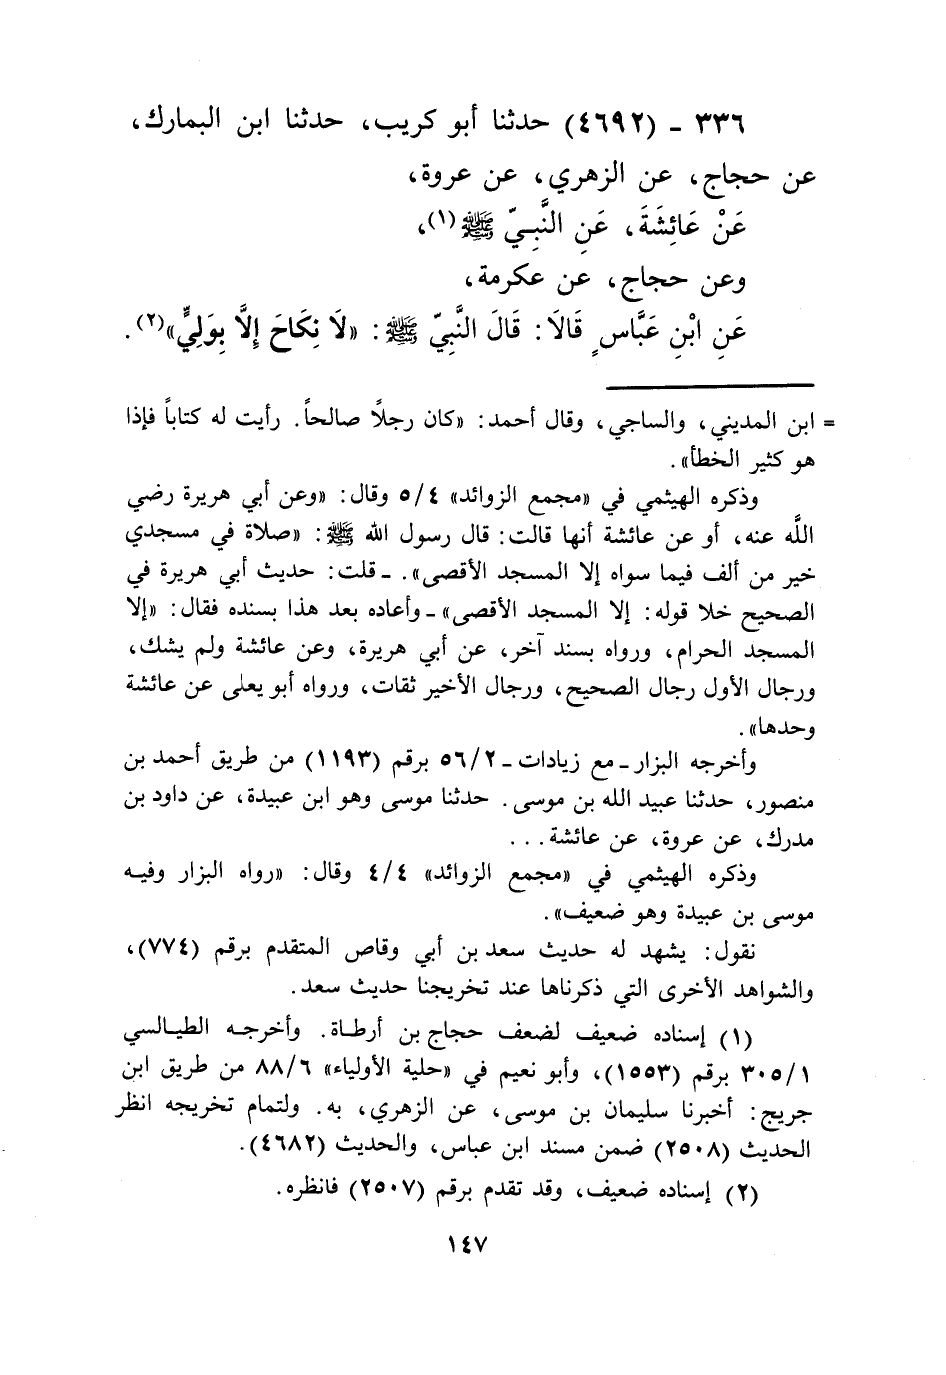 ٣٣٦ - (٤٦٩٢) حدثنا أبو كريب، حدثنا ابن البمارك،
عن حجاج، عن الزهري، عن عروة،
عَنْ عَائِشَةَ، عَنِ النَّبِيّ ﷺ(١)،
وعن حجاج، عن عكرمة،
عَنِ ابْنِ عَبَّاسٍ قَالَا: قَالَ النَّبِيّ ﷺ: «لَا نِكَاحَ إِلَّا بِوَلِيٍّ»(٢).
= ابن المديني، والساجي، وقال أحمد: «كان رجلًا صالحاً. رأيت له كتاباً فإذا
هو كثير الخطأ».
وذكره الهيثمي في «مجمع الزوائد» ٥/٤ وقال: «وعن أبي هريرة رضي
اللَّه عنه، أو عن عائشة أنها قالت: قال رسول الله ﷺ: «صلاة في مسجدي
خير من ألف فيما سواه إلا المسجد الأقصى». - قلت: حديث أبي هريرة في
الصحيح خلا قوله: إلا المسجد الأقصى» - وأعاده بعد هذا بسنده فقال: «إلا
المسجد الحرام، ورواه بسند آخر، عن أبي هريرة، وعن عائشة ولم يشك،
ورجال الأول رجال الصحيح، ورجال الأخير ثقات، ورواه أبو يعلى عن عائشة
وحدها».
وأخرجه البزار - مع زيادات - ٥٦/٢ برقم (١١٩٣) من طريق أحمد بن
منصور، حدثنا عبيد الله بن موسى. حدثنا موسى وهو ابن عبيدة، عن داود بن
مدرك، عن عروة، عن عائشة...
وذكره الهيثمي في «مجمع الزوائد» ٤/٤ وقال: «رواه البزار وفيه
موسى بن عبيدة وهو ضعيف».
نقول: يشهد له حديث سعد بن أبي وقاص المتقدم برقم (٧٧٤)،
والشواهد الأخرى التي ذكرناها عند تخريجنا حديث سعد.
(١) إسناده ضعيف لضعف حجاج بن أرطاة. وأخرجه الطيالسي
٣٠٥/١ برقم (١٥٥٣)، وأبو نعيم في «حلية الأولياء» ٨٨/٦ من طريق ابن
جريج: أخبرنا سليمان بن موسى، عن الزهري، به. ولتمام تخريجه انظر
الحديث (٢٥٠٨) ضمن مسند ابن عباس، والحديث (٤٦٨٢).
(٢) إسناده ضعيف، وقد تقدم برقم (٢٥٠٧) فانظره.
١٤٧